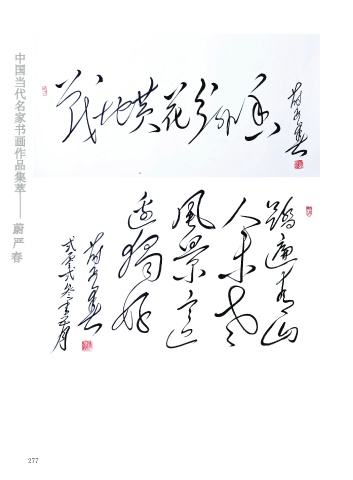 中国当代名家书画作品集萃——蔚严春
战地黄花分外香
蔚严春
踏遍青山
人未老
風景這
邊獨好
蔚严春
277